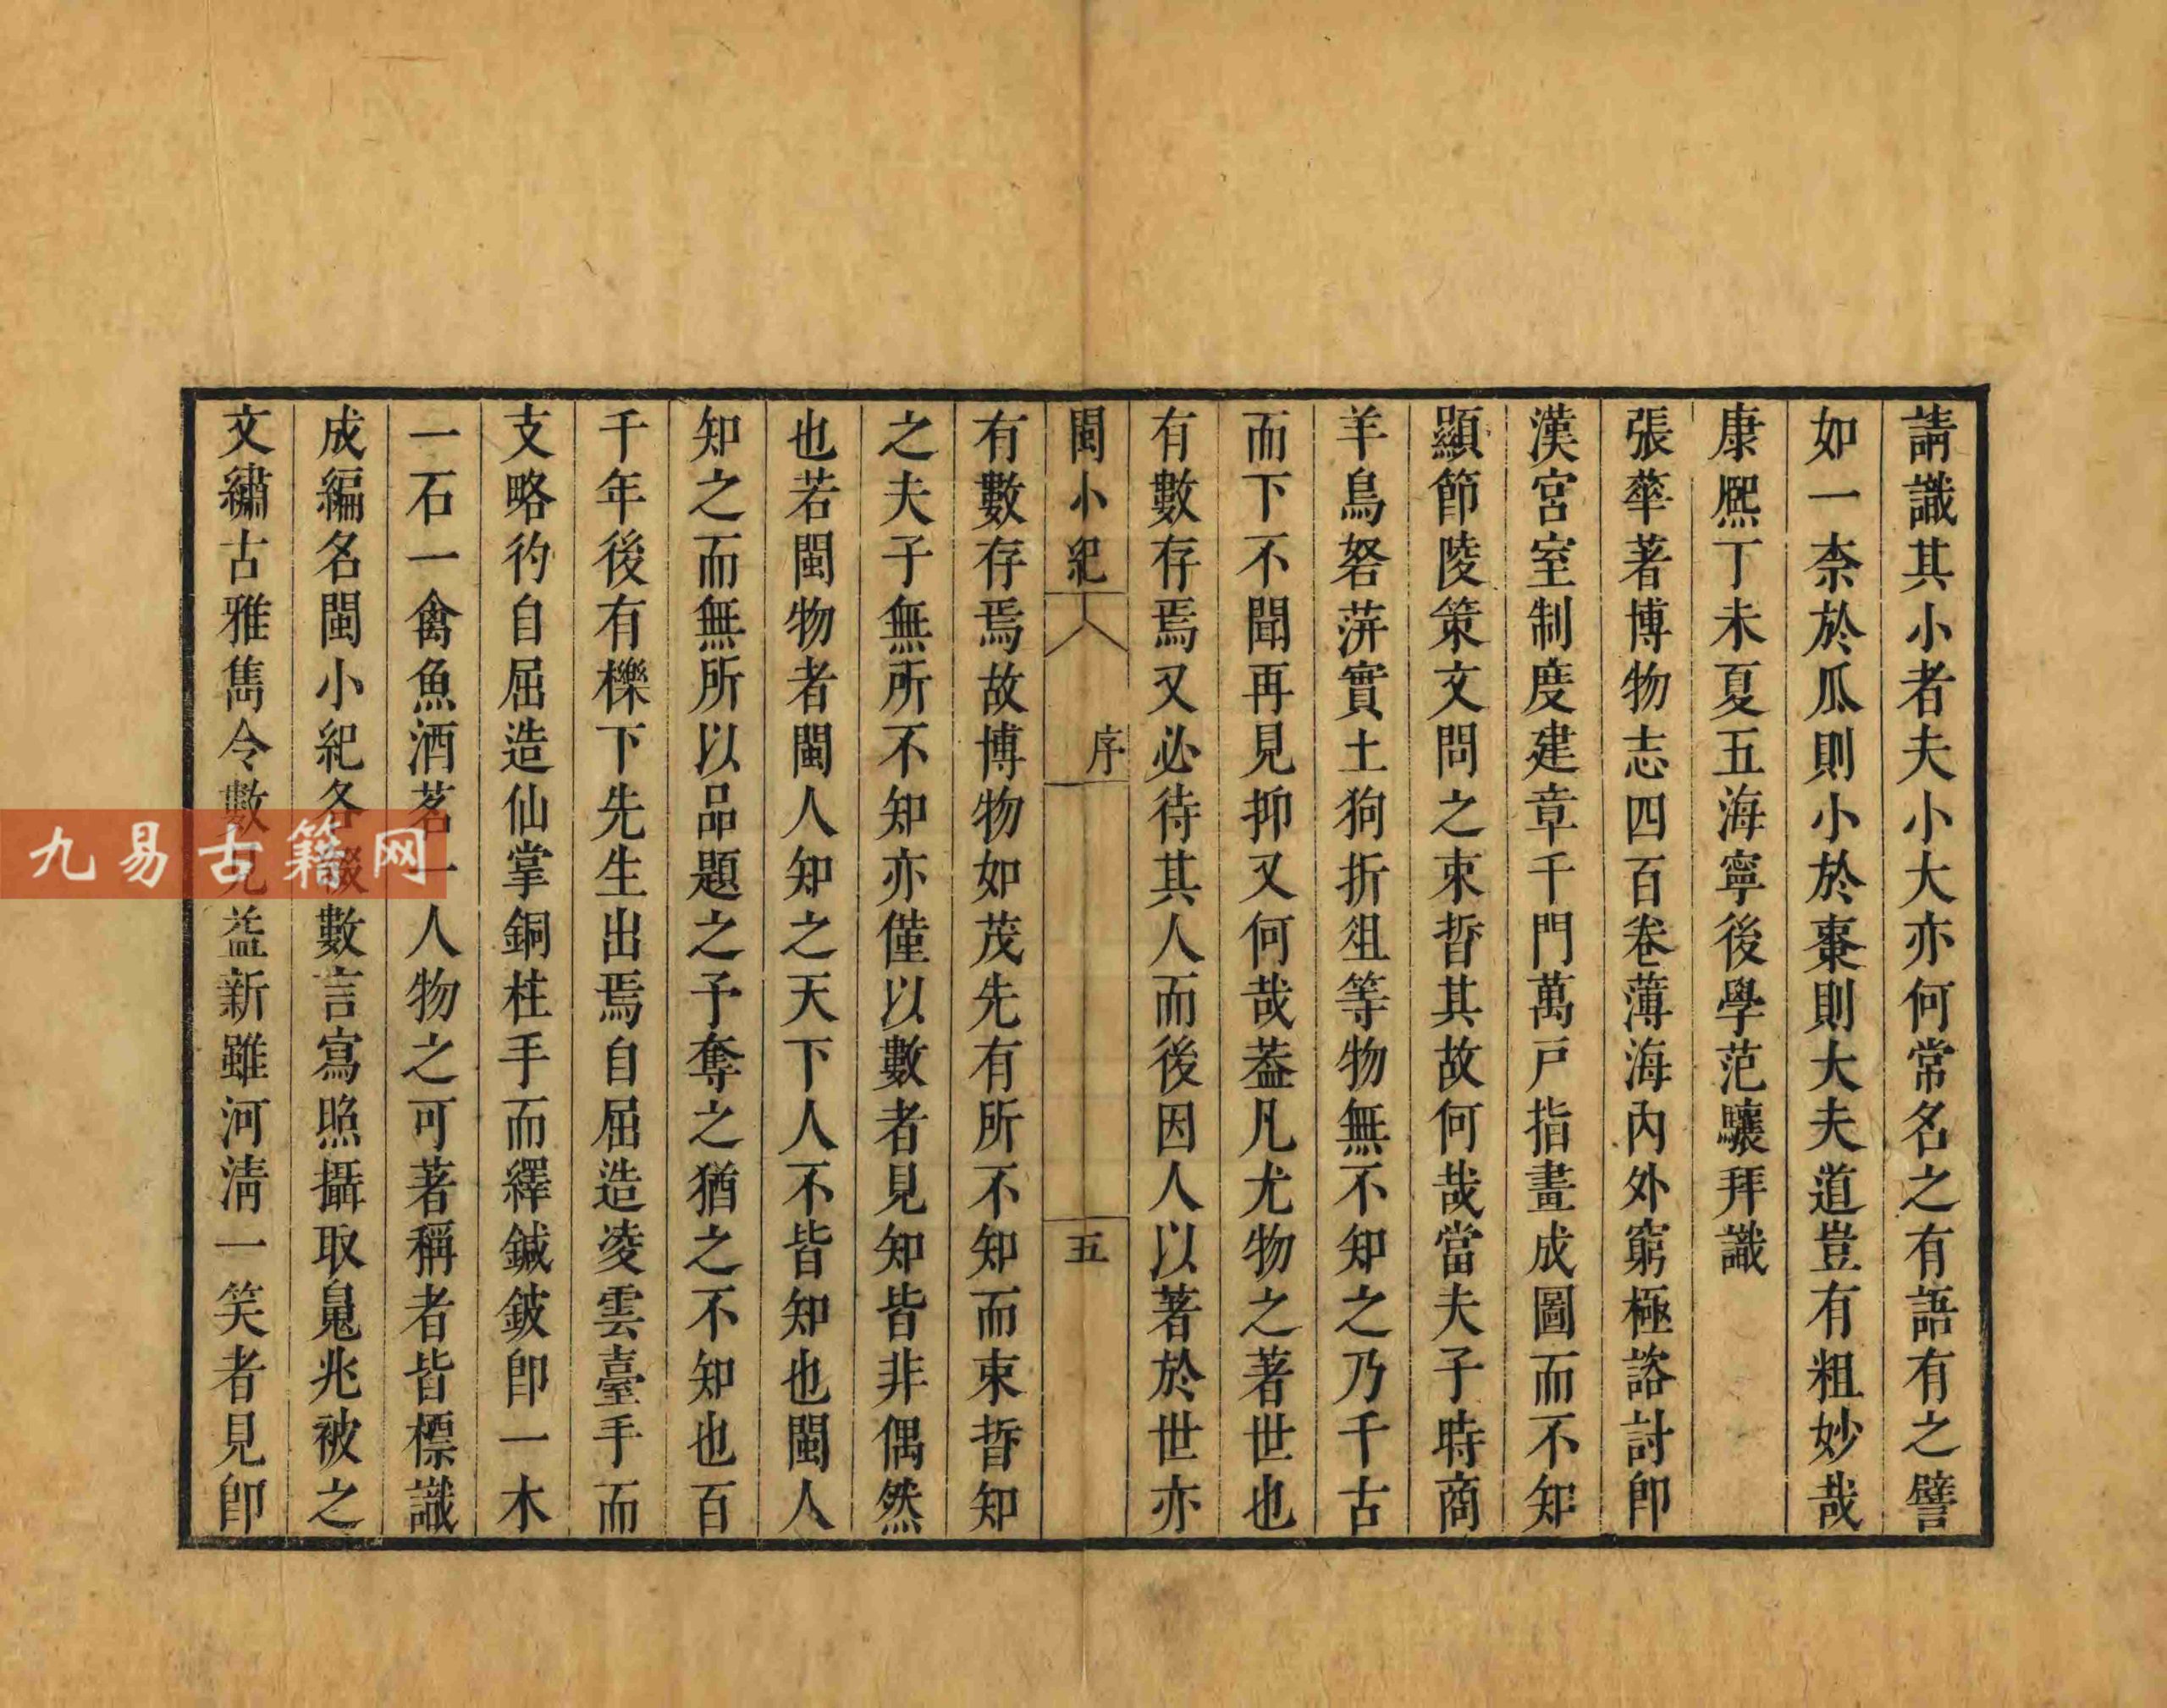 請識其小者夫小大亦何常名之有語有之譬
如一柰於瓜則小於棗則大夫道豈有粗妙哉
康熈丁未夏五海寧後學范驤拜識
張華著博物志四百卷薄海內外窮極諮討卽
漢宮室制度建章千門萬戸指畫成圖而不知
顯節陵策文問之束晳其故何哉當夫子時商
羊鳥砮萍實土狗折俎等物無不知之乃千古
而下不聞再見抑又何哉葢凡尤物之著世也
有數存焉又必待其人而後因人以著於世亦
閩小紀
序
五
有數存焉故博物如茂先有所不知而束晳知
之夫子無所不知亦僅以數者見知皆非偶然
也若閩物者閩人知之天下人不皆知也閩人
知之而無所以品題之予奪之猶之不知也百
千年後有櫟下先生出焉自屈造凌雲臺手而
支略彴自屈造仙掌銅柱手而繹鍼鈹卽一木
一石一禽魚酒茗一人物之可著稱者皆標識
成編名閩小紀各綴數言寫照攝取䰟兆被之
文繡古雅雋令數見益新雖河淸一笑者見卽
九易古籍网